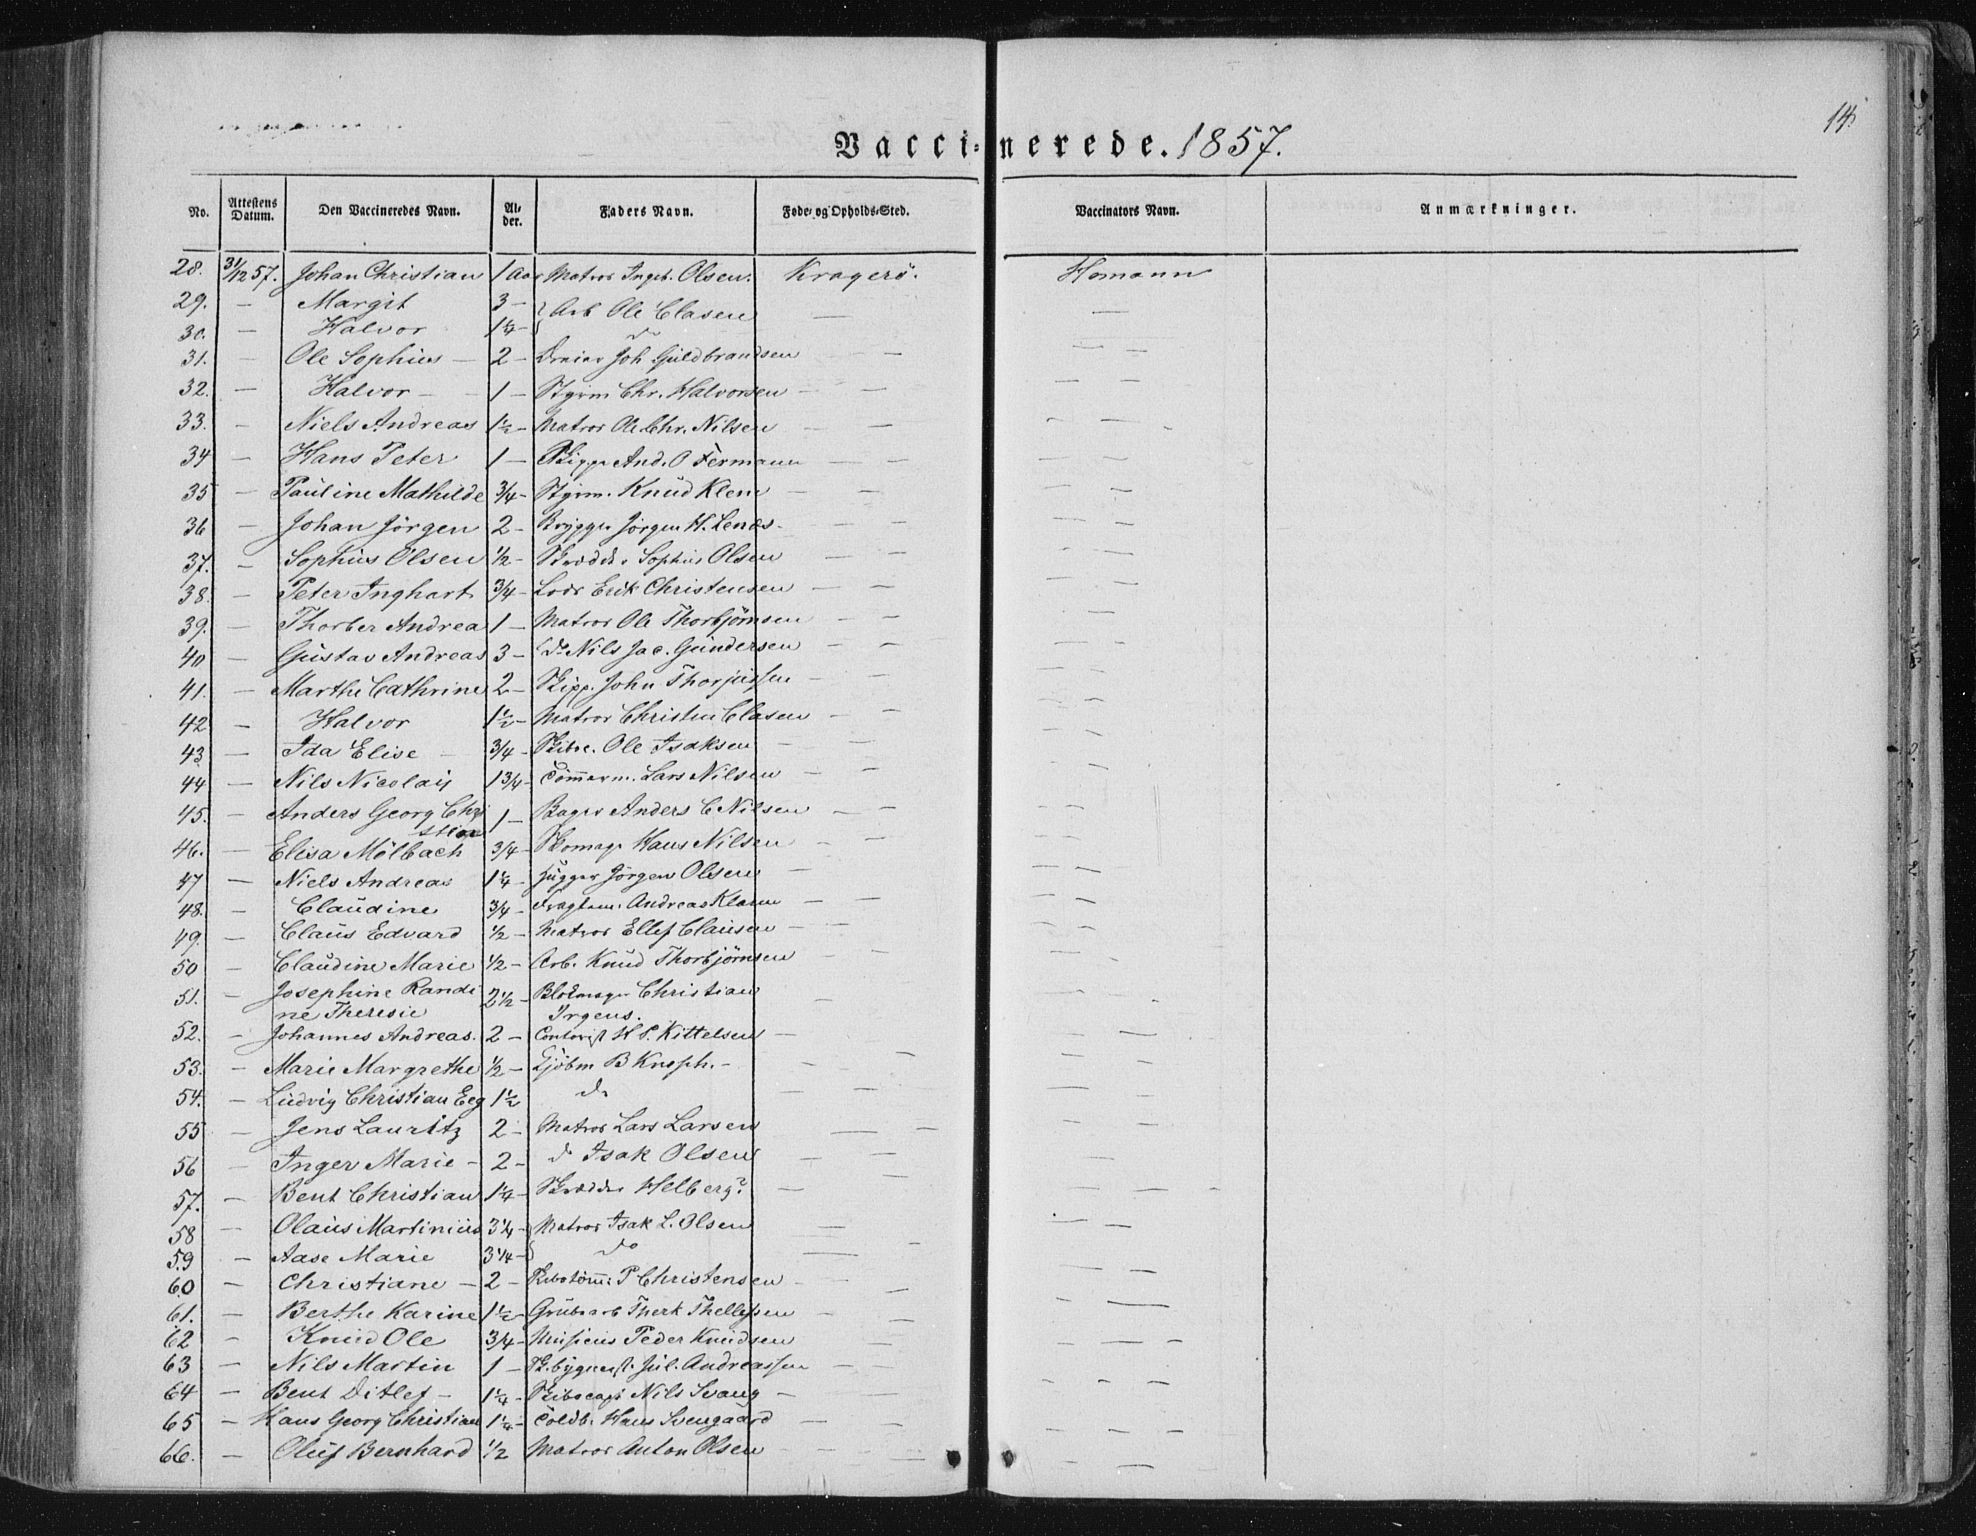 14.
Vaccinerede. 1857.
No. Attestens Datum. Den Vaccineredes Navn. Alder. Faders Navn. Føde- og Opholds-Sted. Vaccinators Navn. Anmærkninger.
28. 31/12 57. Johan Christian 1 Aar Matros Ingeb. Olsen. Kragerö. Homann
29. — Margit 3 — } Arb Ole Clasen — —
30. — Halvor 1¼ — } do
31. — Ole Sophius — 2 — Joh Guldbrandsen — — —
32. — Halvor — 1 — Styrm Chr. Halvorsen — — — —
33. — Niels Andreas 1½ — Matros Ole Chr. Nilsen — — — —
34 — Hans Peter 1 — Skipper And. O Fermann — — — —
35 — Pauline Mathilde 3/4 — Styrm. Knud Klem — — — —
36 — Johan Jörgen 2 — Brygger Jörgen H. Lenæs — — — —
37. — Sophus Olsen ½ — Skrædder Sophus Olsen — — — —
38. — Peter Inghart 3/4 — Lods Erik Christensen — — — —
39. — Thorber Andrea 1 — Matros Ole Thorbjörnsen — — — —
40 — Gustav Andreas 3 — do Nils Jac. Gundersen — — — —
41. — Marthe Cathrine 2 — Skipp. John Thorjussen — — — —
42 — Halvor 1½ — Matros Christen Clasen — — — —
43 — Ida Elise — 3/4 — Ole Isaksen — — — —
44 — Nils Nicolaij 1 3/4 — Tömmerm. Lars Nilsen — — — —
45. — Anders Georg Chri 1 — Bager Anders C Nilsen — — — —
stian
46. — Elisa Mölbach 3/4 — Skomager Hans Nilsen — — —
47 — Niels Andreas 1¼ — Jörgen Olsen — — —
48. — Claudine 3/4 — Andreas Klasen — — — —
49. — Claus Edvard ½ — Matros Ellef Clausen — — — —
50 — Claudine Marie ½ — Arb. Knud Thorbjörnsen — — — —
51. — Josephine Randi 2½ — Blokmager Christian — — — —
ne Theresie Irgens.
52. — Johannes Andreas. 2 — Contorist H P. Kittelsen — — —
53. — Marie Margrethe ½ — Kjöbm B Knoph. — — — — —
54. — Ludvig Christian Eeg 1½ do — — —
55 — Jens Lauritz 2 — Matros Lars Larsen — — — —
56 — Inger Marie — 2 — do Isak Olsen — — — —
57. — Bent Christian 1¼ — Skrædder Helberg? — — — —
58 — Olaus Martinius 3¼ — } Matros Isak L. Olsen — — —
59 — Aase Marie 3¼ — } do — — —
60 — Christiane — 2 — P Christensen — — —
61. — Berthe Karine 1½ — Grubearb Therk Thellefsen — — —
62 — Knud Ole 3/4 — Musicus Peder Knudsen — — — —
63 — Nils Martin 1 — Jul. Andreassen — — — —
64 — Bent Ditlef — 1¼ — Nils Svang — — —
65 — Hans Georg Christian 1¼ — Toldb. Hans Svengaard — — — —
66. — Oluf Bernhard ½ Matros Anton Olsen — — — —